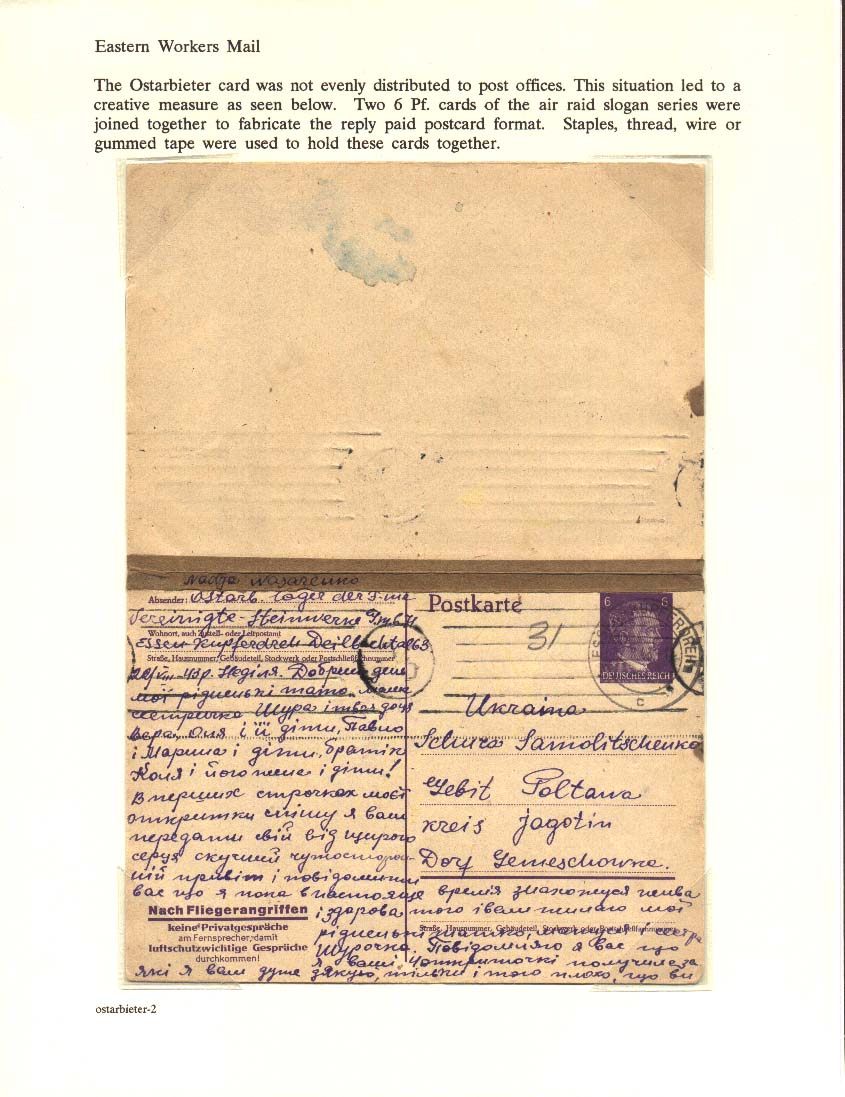 Eastern Workers Mail
The Ostarbieter card was not evenly distributed to post offices. This situation led to a
creative measure as seen below. Two 6 Pf. cards of the air raid slogan series were
joined together to fabricate the reply paid postcard format. Staples, thread, wire or
gummed tape were used to hold these cards together.
Nadja Nasarenko
Absender: Ostarb. lager der F-ma
Vereinigte-Steinwerke G.m.b.H
Wohnort, auch Zustell- oder Leitpostamt
Essen-Kupferdreh Deilbachtal 63
Straße, Hausnummer, Gebäudeteil, Stockwerk oder Postschließfachnummer
Неділя. Добрий день
мої рідненькі мамо
сестричко Шура і твоя доця
Вера, Оля і її діти, Павло
і Марина і діти, братік
Коля і його жена і діти!
В перших строчках моєї
открытки спішу я вам
передати свій від щирого
серця скучний чутосторон-
ній привіт і повідомити
вас що я пока в настояще время знахожуся жива
і здорова того і вам желаю мої
рідненькі мамо, і сестра
Шурочка. Повідомляю я вас що
я ваші 4 открыточкі получила за
які я вам дуже дякую, тільки і того плохо, що ви
Postkarte
31
6 6
DEUTSCHES REICH
c
Ukraina
Schura Samolitschenko
Gebit Poltawa
kreis Jagotin
Dorf Gemeschowka.
Straße, Hausnummer, Gebäudeteil, Stockwerk oder Postschließfachnummer
Nach Fliegerangriffen
keine Privatgespräche
am Fernsprecher, damit
luftschutzwichtige Gespräche
durchkommen!
ostarbieter-2